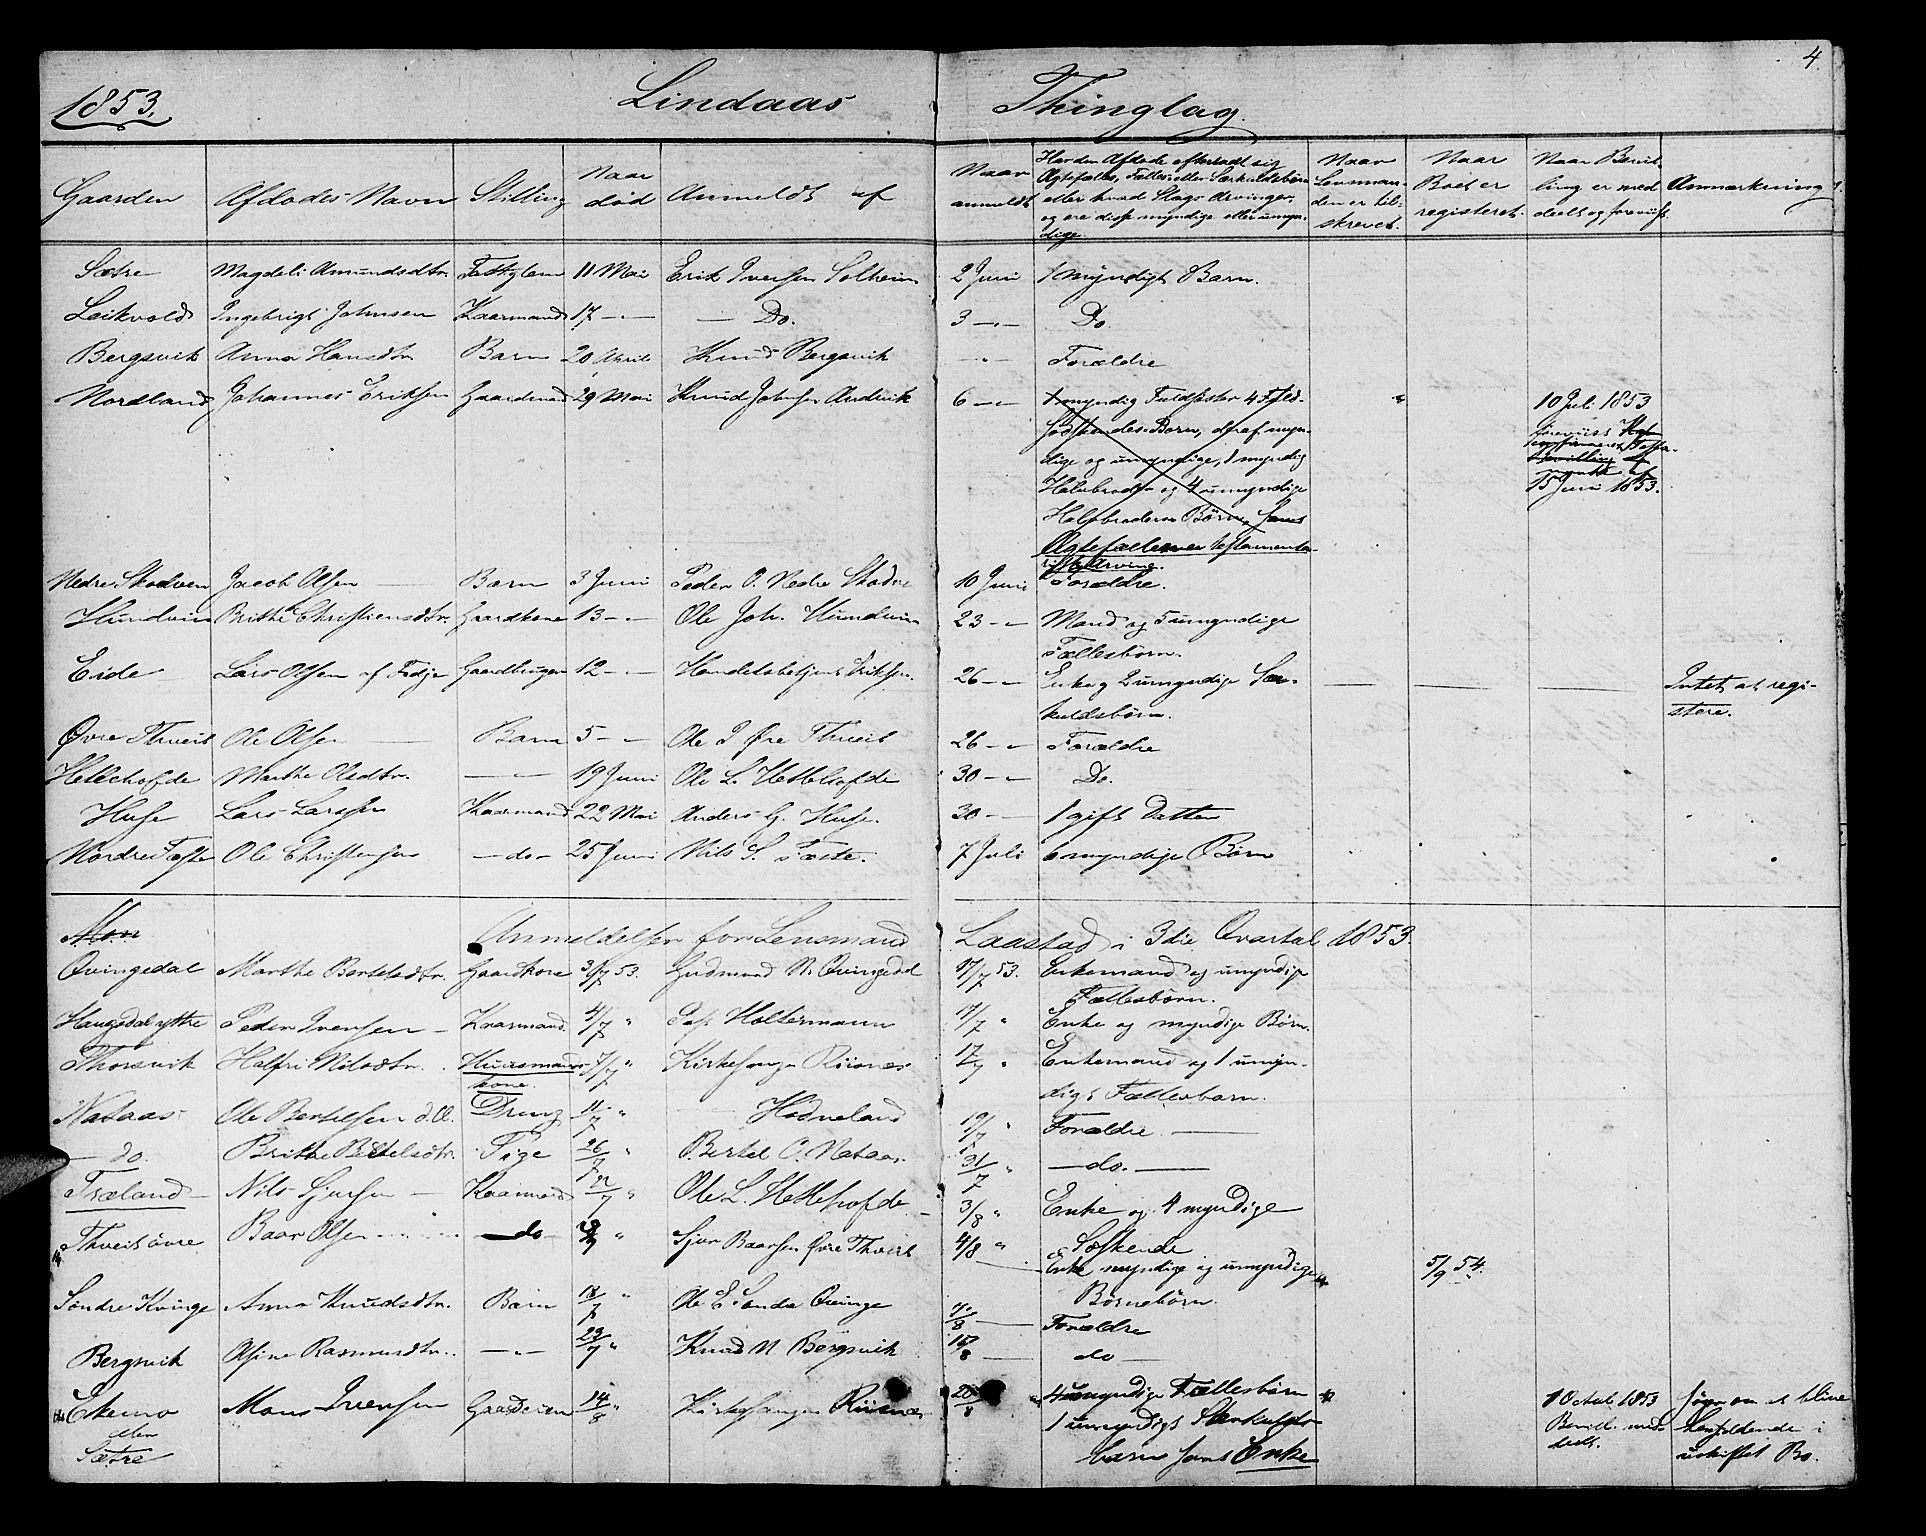 4.
1853. Lindaas Thinglag.
Gaarden Afdødes Navn Stilling Naar død Anmeldt af Naar anmeldt Har den Afdøde efterladt sig Ægtefælle, Fælles eller Særkuldsbørn eller hvad Slags Arvinger, og ere disse myndige eller umyndige Naar Lensmanden er tilskrevet. Naar Boet er registeret. Naar Bevilling er meddeelt og foreviist. Anmærkning
Sætre Magdeli Amundsdtr. 11 Mai Erik Iversen Solheim 2 Juni 1 myndigt Barn.
Leikvold Ingebrigt Johnsen Kaarmand 17 -"- — Do. 3 -"- Do.
Bergsvik Anna Hansdtr Barn 20 April Knud Bergsvik " Forældre
Nordland Johannes Eriksen Gaardmand 29 Mai Knud Johnsen Andvik 6 -"- 1 myndig Fuldsøster 4 Fuld-
Børn, deraf myn-
dige og umyndige, 1 myndig
Halvbroder og 4 umyndige
Halfbroders Børn, samt
Ægtefælle testamenta-
risk Arving.
" 10 Juli 1853
foreviist
15 Juni 1853.
Nedre Skodven Jacob Olsen Barn 3 Juni Peder O. Nedre Skodve 10 Juni Forældre.
Hundvin Brithe Christiensdtr. Gaardkone 13 -"- Ole Joh. Hundvin 23 -"- Mand og 5 umyndige
Fællesbørn.
Eide Lars Olsen af Fedje Gaardbruger 12 -"- Handelsbetjent Eriksen. 26 -"- Enke og 2 umyndige Sær-
kuldsbørn.
Intet at regi-
stere.
Øvre Thveit Ole Olsen Barn 5 -"- Ole I. Øvre Thveit 26 -"- Forældre
Hellehofde Marthe Olsdtr. -"- 19 Juni Ole L. Hellehofde 30 -"- Do.
Huse Lars Larssen Kaarmand 22 Mai Anders G. Huse. 30 -"- 1 gift Datter
Nordre Fæste Ole Christensen — do — 25 Juni Nils S. Fæste. 7 Juli 6 myndige Børn
Mon
Anmeldelser for Lensmand Laastad i 3die Qvartal 1853.
Qvingedal Marthe Bertelsdtr. Gaardkone 3/7 53. Gudmund N. Qvingedal 17/7 53. Enkemand og umyndige
Fællesbørn.
Haugedal yttre Peder Iversen — Kaarmand. 4/7 " Holtermann 17/7 " Enke og myndige Børn.
Thorsvik Halfri Nilsdtr. Huusmands-
kone. 7/7 " Kirkesanger Riisnæs 17/7 " Enkemand og 1 umyn-
digt Fællesbarn.
Nataas Ole Bertelsen Dreng 11/7 " Hodneland 19/7 " Forældre. —
— do. Brithe Bertelsdtr. Pige 26/7 Bertel O. Nataas. 31/7 " — do. —
Træland — Nils Sjursen — Kaarmand 22/7 " Ole L. Hellehofde 3/8 " Enke og 4 myndige
Søskende
Thveit øvre Baar Olsen — do — " Sjur Baarsen Øvre Thveit 4/8 " Enke myndige og umyndige
Børnebørn.
5/9 54.
Søndre Kvinge Anna Knudsdtr. Barn 18/7 " Ole E. Søndre Qvinge 7/8 — Forældre
Bergsvik Olsine Rasmusdtr. — " — 23/7 " Knud N. Bergsvik — do —
Ekemo
eller
Sætre
Mons Iversen 14/8 " Kirkesanger Riisnæs 4 umyndige Fællesbørn
1 umyndigt Særkulds-
barn samt Enke
1 Octob. 1853
Bevill. med-
deelt.
Søger om at blive
hensiddende i
uskiftet Bo.